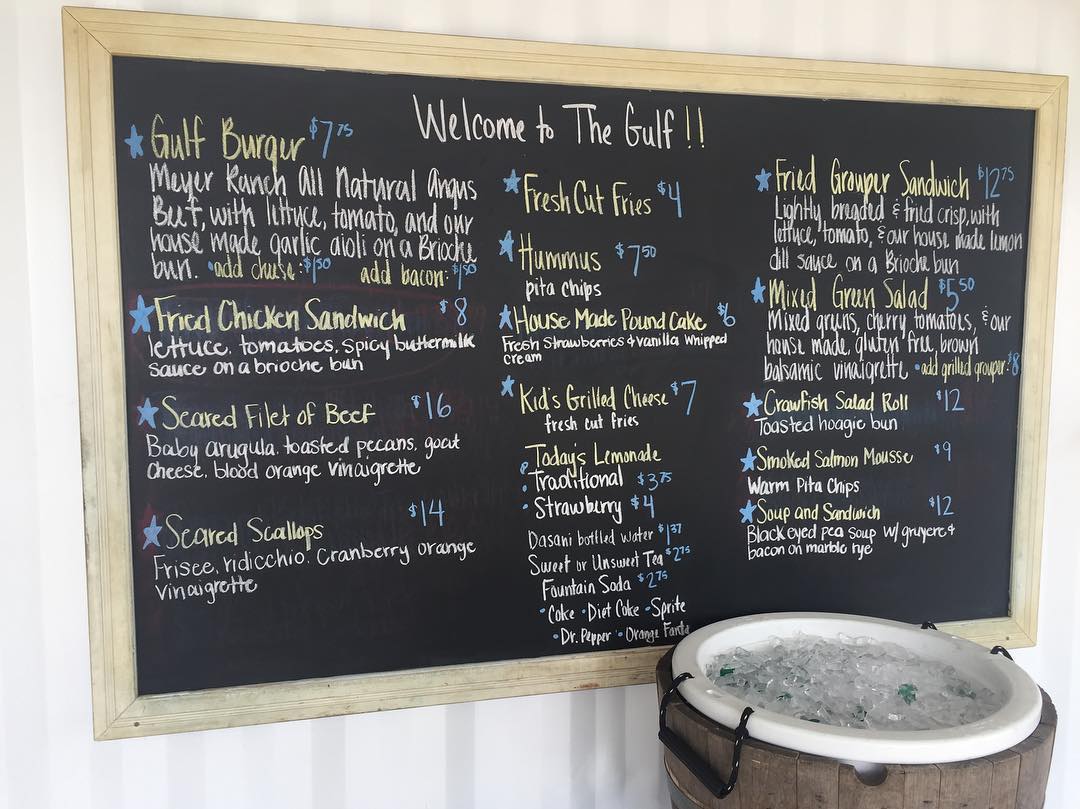 Welcome to The Gulf!!
Gulf Burger $7 75
Meyer Ranch All Natural Angus
Beef, with lettuce, tomato, and our
house made garlic aioli on a Brioche
bun. •add cheese: $1 50 add bacon: $1 50
Fried Chicken Sandwich $8
lettuce, tomatoes, spicy buttermilk
sauce on a brioche bun
Seared Filet of Beef $16
Baby arugula, toasted pecans, goat
cheese, blood orange vinaigrette
Seared Scallops $14
Frisee, ridicchio, Cranberry orange
vinaigrette
Fresh Cut Fries $4
Hummus $7 50
pita chips
House Made Pound Cake $6
Fresh Strawberries & vanilla whipped
cream
Kid's Grilled Cheese $7
fresh cut fries
Today's Lemonade
• Traditional $3 75
• Strawberry $4
Dasani bottled water $1 37
Sweet or Unsweet Tea $2 75
Fountain Soda $2 75
•Coke •Diet Coke •Sprite
•Dr. Pepper •Orange Fanta
Fried Grouper Sandwich $12 75
Lightly breaded & fried crisp, with
lettuce, tomato, & our house made lemon
dill sauce on a Brioche bun
Mixed Green Salad $5 50
Mixed greens, cherry tomatoes, & our
house made, gluten free, brown
balsamic vinaigrette •add grilled grouper: $8
Crawfish Salad Roll $12
Toasted hoagie bun
Smoked Salmon Mousse $9
Warm Pita Chips
Soup and Sandwich $12
Black eyed pea soup w/ gruyere &
bacon on marble rye